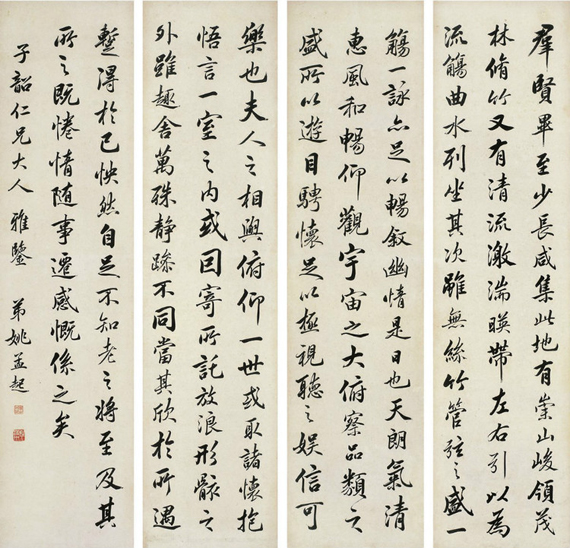 羣賢畢至少長咸集此地有崇山峻領茂
林脩竹又有清流激湍暎帶左右引以為
流觴曲水列坐其次雖無絲竹管弦之盛一
觴一詠亦足以暢叙幽情是日也天朗氣清
惠風和暢仰觀宇宙之大俯察品類之
盛所以遊目騁懷足以極視聽之娱信可
樂也夫人之相與俯仰一世或取諸懷抱
悟言一室之内或因寄所託放浪形骸之
外雖趣舍萬殊静躁不同當其欣於所遇
暫得於己怏然自足不知老之將至及其
所之既惓情隨事遷感慨係之矣
子韶仁兄大人雅鑒 弟姚孟起